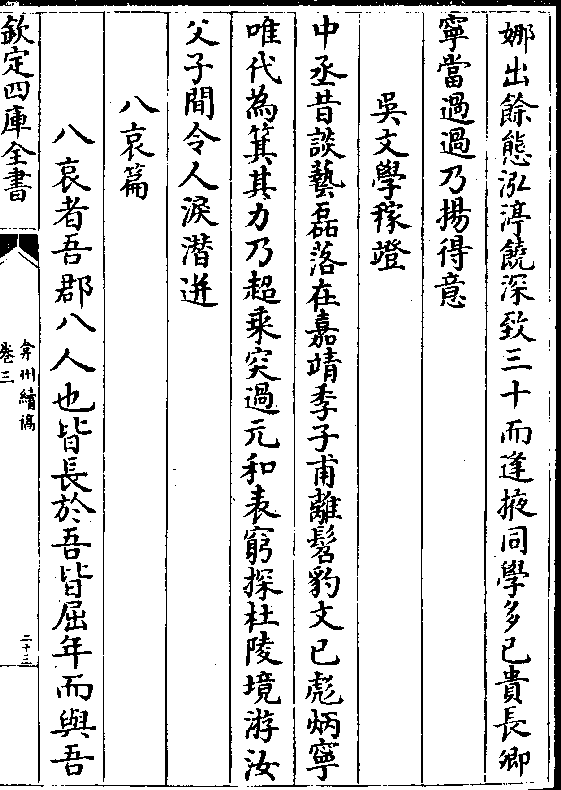 娜出餘態泓渟饒深致三十而逢掖同學多已貴長卿
寧當過過乃揚得意
吳文學稼竳
中丞昔談藝磊落在嘉靖季子甫離髫豹文已彪炳寧
唯代為箕其力乃超乘突過元和表窮探杜陵境游汝
父子間令人淚潛迸
八哀篇
八哀者吾郡八人也皆長於吾皆屈年而與吾
欽定四庫全書
弇州續稿
卷三
二十三